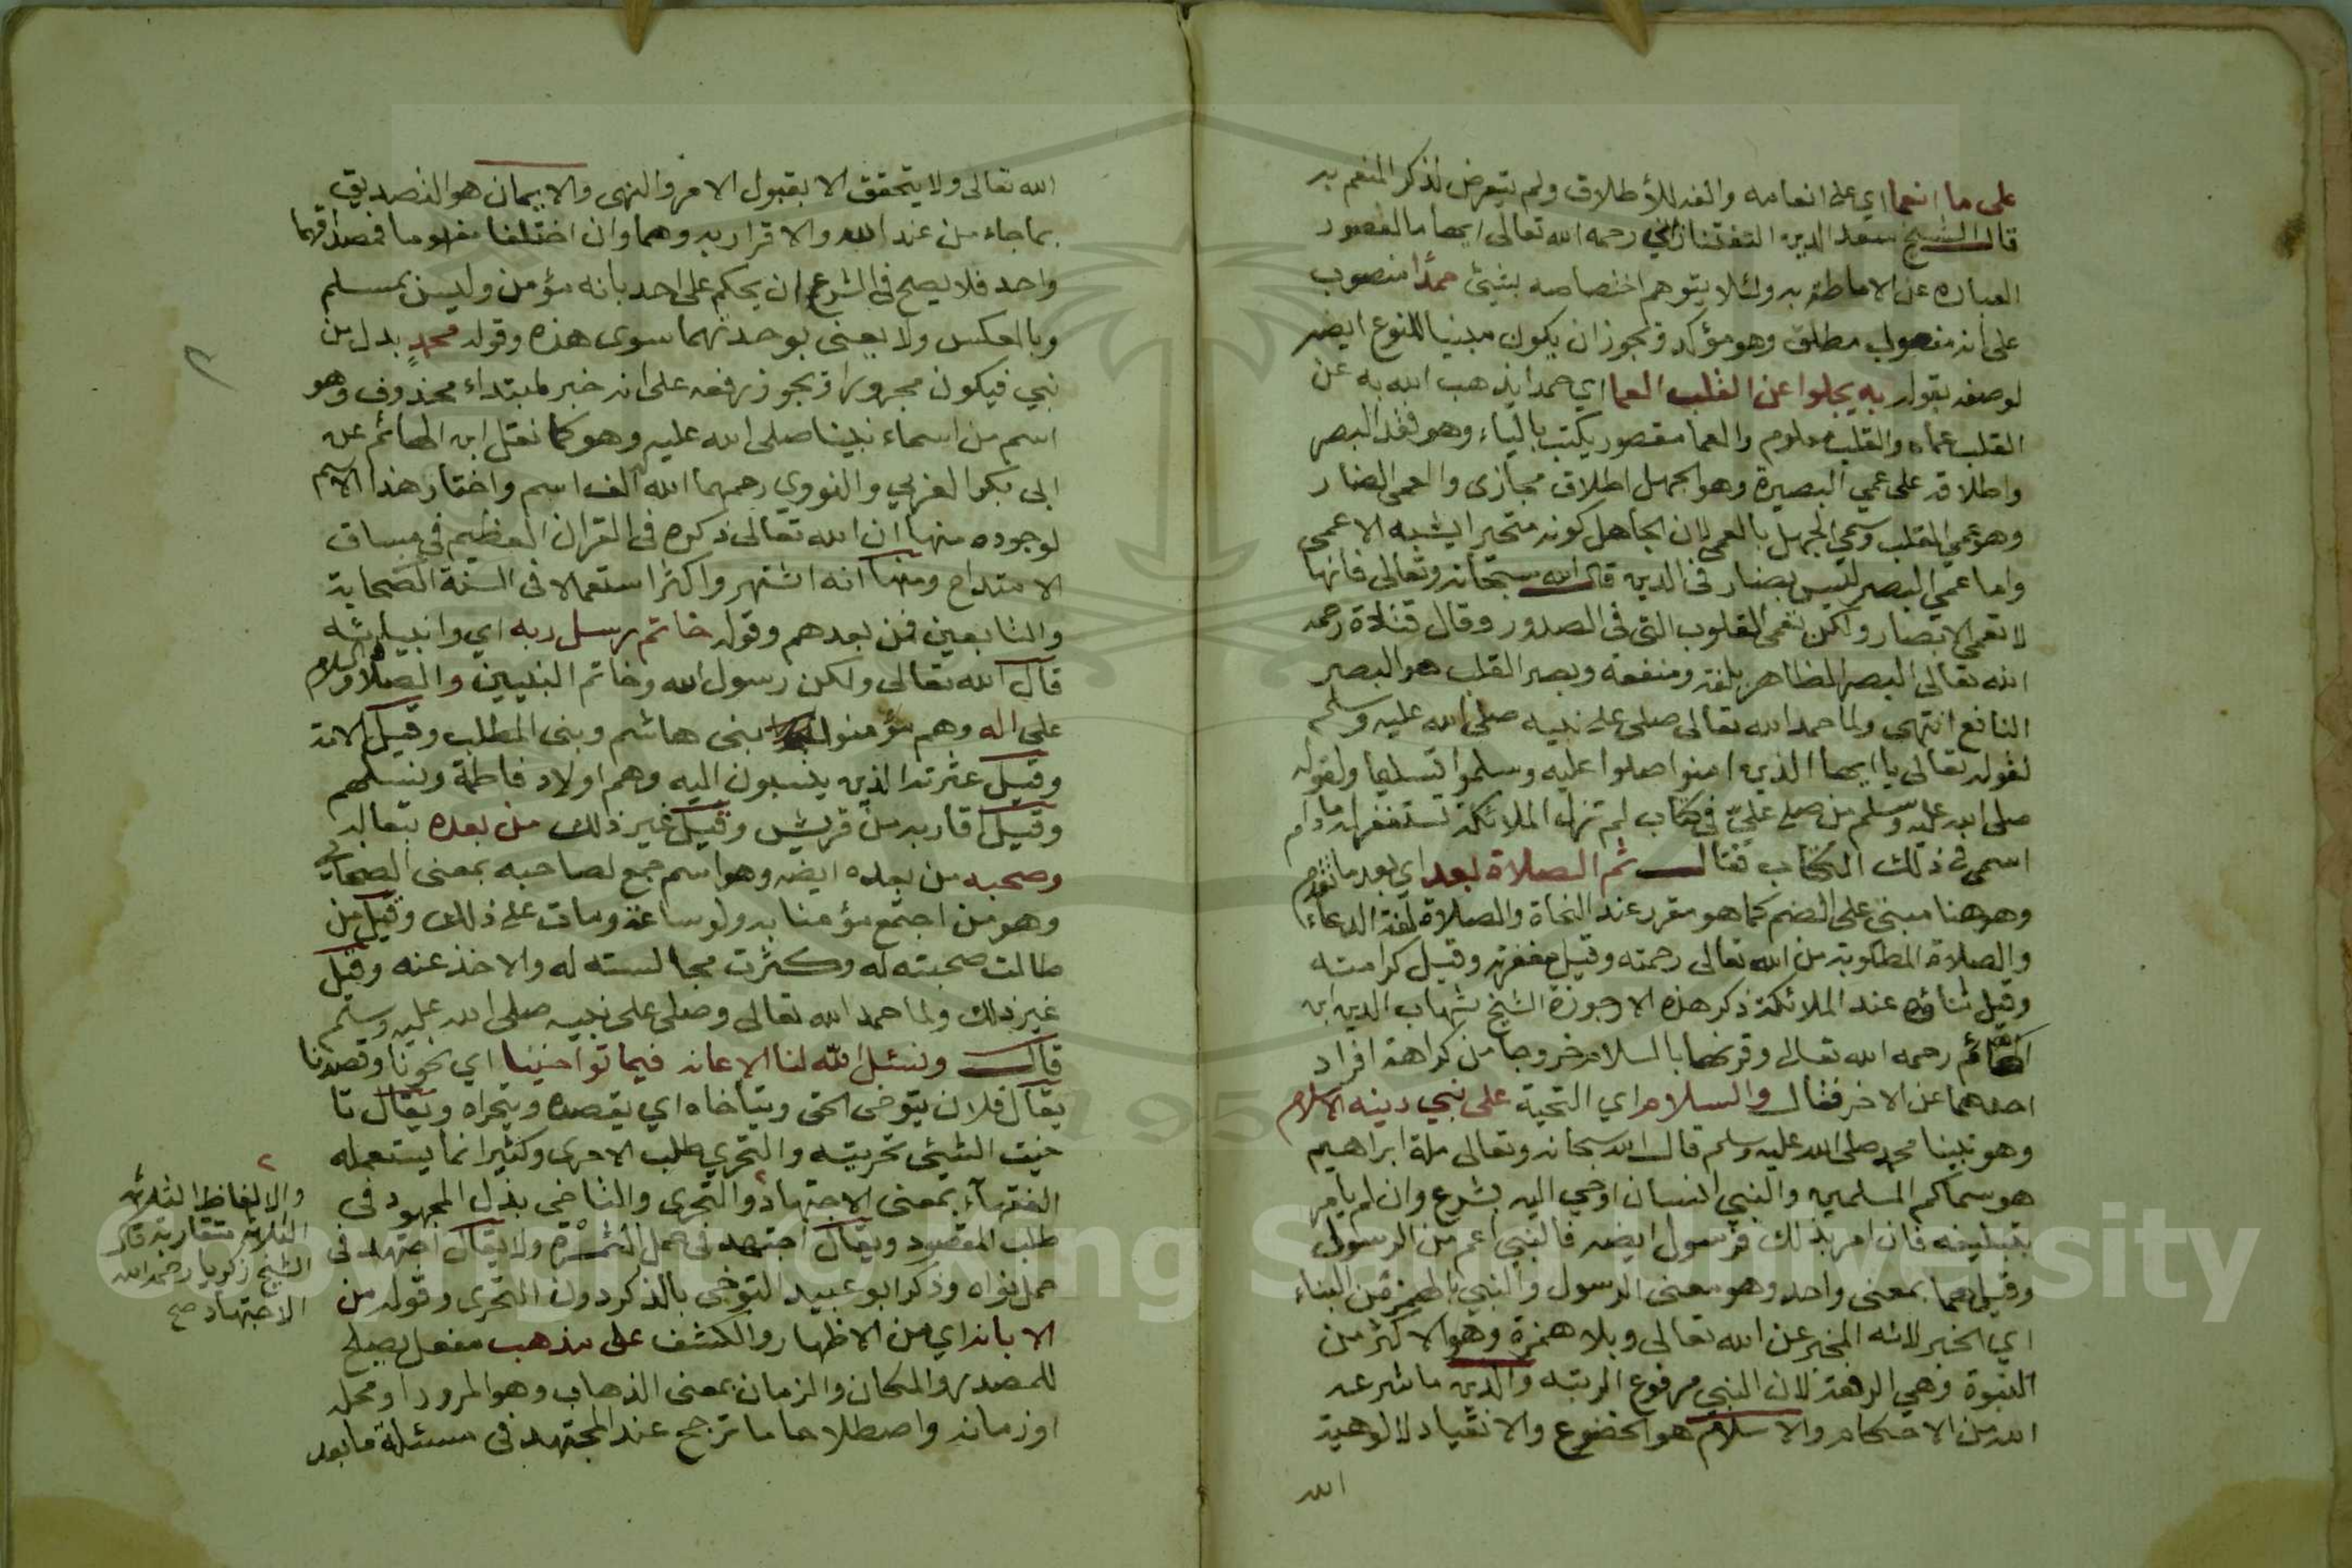 على ما انعما اي على انعامه والفه للأطلاق ولم يتعرض لذكر المنعم به
قال الشيخ سعد الدين التفتنازاني رحمه الله تعالى ايهاما لقصور
العبارة عن الاحاطة به ولئلا يتوهم اختصاصه بشيئ حمدا منصوب
على انه مفعول مطلق وهو مؤكد ويجوز ان يكون مبنيا للنوع ايضا
لوصفه بقوله به يجلوا عن القلب العما اي حمدا يذهب الله به عن
القلب عماه والقلب معلوم والعما مقصور يكتب بالياء وهو فقد البصر
واطلاقه على عمي البصيرة وهو الجهل اطلاق مجازى والعمى الضار
وهو عمي القلب وسمي الجهل بالعمى لان الجاهل كونه متحيرا يشبه الاعمى
واما عمي البصر ليس بضار في الدين قال الله سبحانه وتعالى فانها
لا تعمى الابصار ولكن تعمى القلوب التى فى الصدور وقال قتادة رحمه
الله تعالى البصر الظاهر بلغة ومنفعة وبصر القلب هو البصر
النافع انتهى ولما حمد الله تعالى صلى على نبيه صلى الله عليه وسلم
لقوله تعالى يا ايها الذين امنوا صلوا عليه وسلموا تسليما ولقوله
صلى الله عليه وسلم من صلى عليّ في كتاب لم تزل الملائكة تستغفر له ما دام
اسمى في ذلك الكتاب فقال ثم الصلاة بعد اي بعد ما تقدم
وهو هنا مبنى على الضم كما هو مقرر عند النحاة والصلاة لغة الدعاء
والصلاة المطلوبة من الله تعالى رحمته وقيل مغفرته وقيل كرامته
وقيل ثناؤه عند الملائكة ذكر هذه الارجوزة الشيخ شهاب الدين ابن
الهائم رحمه الله تعالى وقرنها بالسلام خروجا من كراهة افراد
احدهما عن الاخر فقال والسلام اي التحية على نبي دينه الاسلام
وهو نبينا محمد صلى الله عليه وسلم قال الله سبحانه وتعالى ملة ابراهيم
هو سماكم المسلمين والنبي انسان اوحي اليه بشرع وان لم يامر
بتبليغه فان امر بذلك فرسول ايضا فالنبي اعم من الرسول
وقيل هما بمعنى واحد وهو معنى الرسول والنبي بالهمز من النباء
اي الخبر لانه المخبر عن الله تعالى وبلا همزة وهو الاكثر من
النبوة وهي الرفعة لان النبي مرفوع الرتبة والدين ما شرعه
الله من الاحكام والاسلام هو الخضوع والانقياد لالوهية
الله
الله تعالى ولا يتحقق الا بقبول الامر والنهى والايمان هو التصديق
بما جاء من عند الله والاقرار به وهما وان اختلفا مفهوما فمصداقهما
واحد فلا يصح في الشرع ان يحكم على احد بانه مؤمن وليس بمسلم
وبالعكس ولا يعنى بوحدتهما سوى هذه وقوله محمدٍ بدل من
نبي فيكون مجرورا ويجوز رفعه على انه خبر لمبتداء محذوف وهو
اسم من اسماء نبينا صلى الله عليه وهو كما نقل ابن الهائم عن
ابى بكر العربي والنووي رحمهما الله الف اسم واختار هذا الاسم
لوجوده منها ان الله تعالى ذكره في القران العظيم في مساق
الامتداح ومنها انه اشتهر واكثر استعمالا فى السنة الصحابة
والتابعين فمن بعدهم وقوله خاتم رسل ربه اي وانبيائه
قال الله تعالى ولكن رسول الله وخاتم النبيين والصلاة والسلام
على اله وهم مؤمنوا بنى هاشم وبنى المطلب وقيل الامة
وقيل عترته الذين ينسبون اليه وهم اولاد فاطمة ونسلهم
وقيل اقاربه من قريش وقيل غير ذلك من بعده
وصحبه من بعده ايضا وهو اسم جمع لصاحبه بمعنى الصحابي
وهو من اجتمع مؤمنا به ولو ساعة ومات على ذلك وقيل من
طالت صحبته له وكثرت مجالسته له والاخذ عنه وقيل
غير ذلك ولما حمد الله تعالى وصلى على نبيه صلى الله عليه وسلم
قال ونسئل الله لنا الاعانه فيما توخينا اي نحونا وقصدنا
يقال فلان يتوخى الحق ويتأخاه اي يقصده ويتحراه ويقال تا
خيت الشيئ تحريته والتحري طلب الاحرى وكثيرا ما يستعمله
الفقهاء بمعنى الاجتهاد والتحرى والتاخى بذل المجهود في
طلب المقصود ويقال اجتهد في حمل الصخرة ولا يقال اجتهد في
حمل نواه وذكر ابو عبيد التوخى بالذكر دون التحرى وقوله من
الابانه اي من الاظهار والكشف على مذهب مفعل يصلح
للمصدر والمكان والزمان بمعنى الذهاب وهو المرور او محله
او زمانه واصطلاحا ما ترجح عند المجتهد في مسئلة ما بعد
والالفاظ الثلاثة
الثلاثة متقاربة قال
الشيخ زكريا رحمه الله
الاجتهاد صح
Copyright © King Saud University
195